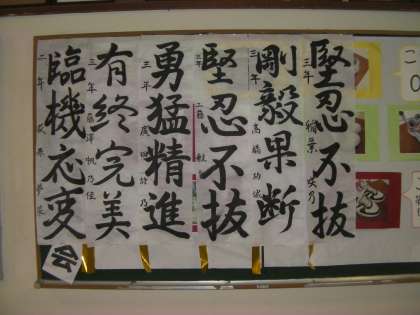 堅忍不抜
三年
剛毅果断
三年
堅忍不抜
三年
勇猛精進
三年
有終完美
三年
臨機応変
二年
会